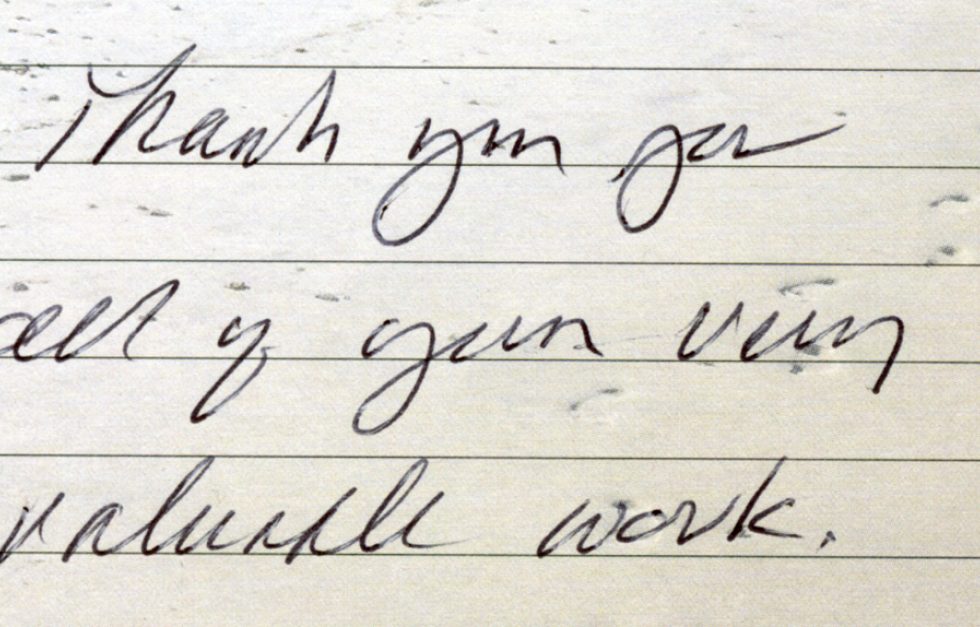 Thank you for
all of your very
valuable work.